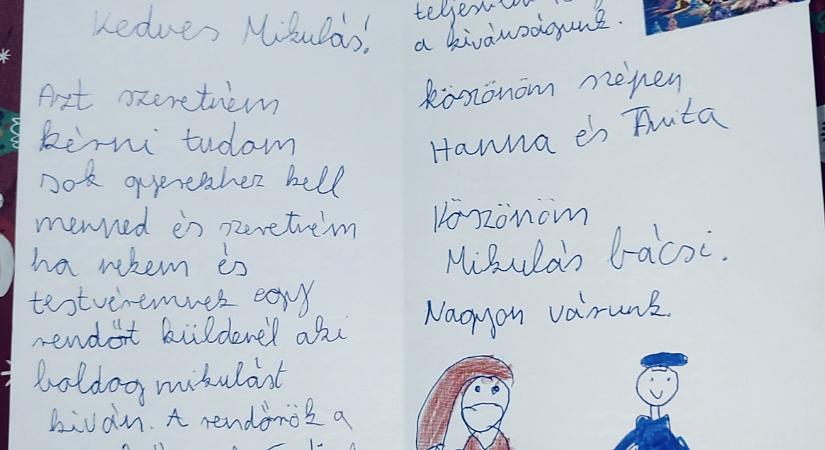 Kedves Mikulás!
Azt szeretném
kérni tudom
sok gyerekhez kell
menned és szeretném
ha nekem és
testvéremnek egy
rendőrt küldenél aki
boldog mikulást
kiván. A rendőrök a
a kívánságunk.
köszönöm szépen
Hanna és Anita
Köszönöm
Mikulás bácsi.
Nagyon várunk.